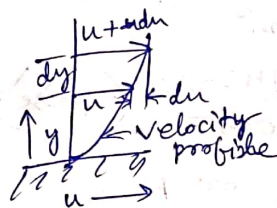 u+du
dy
u
du
y
velocity
profisbe
u